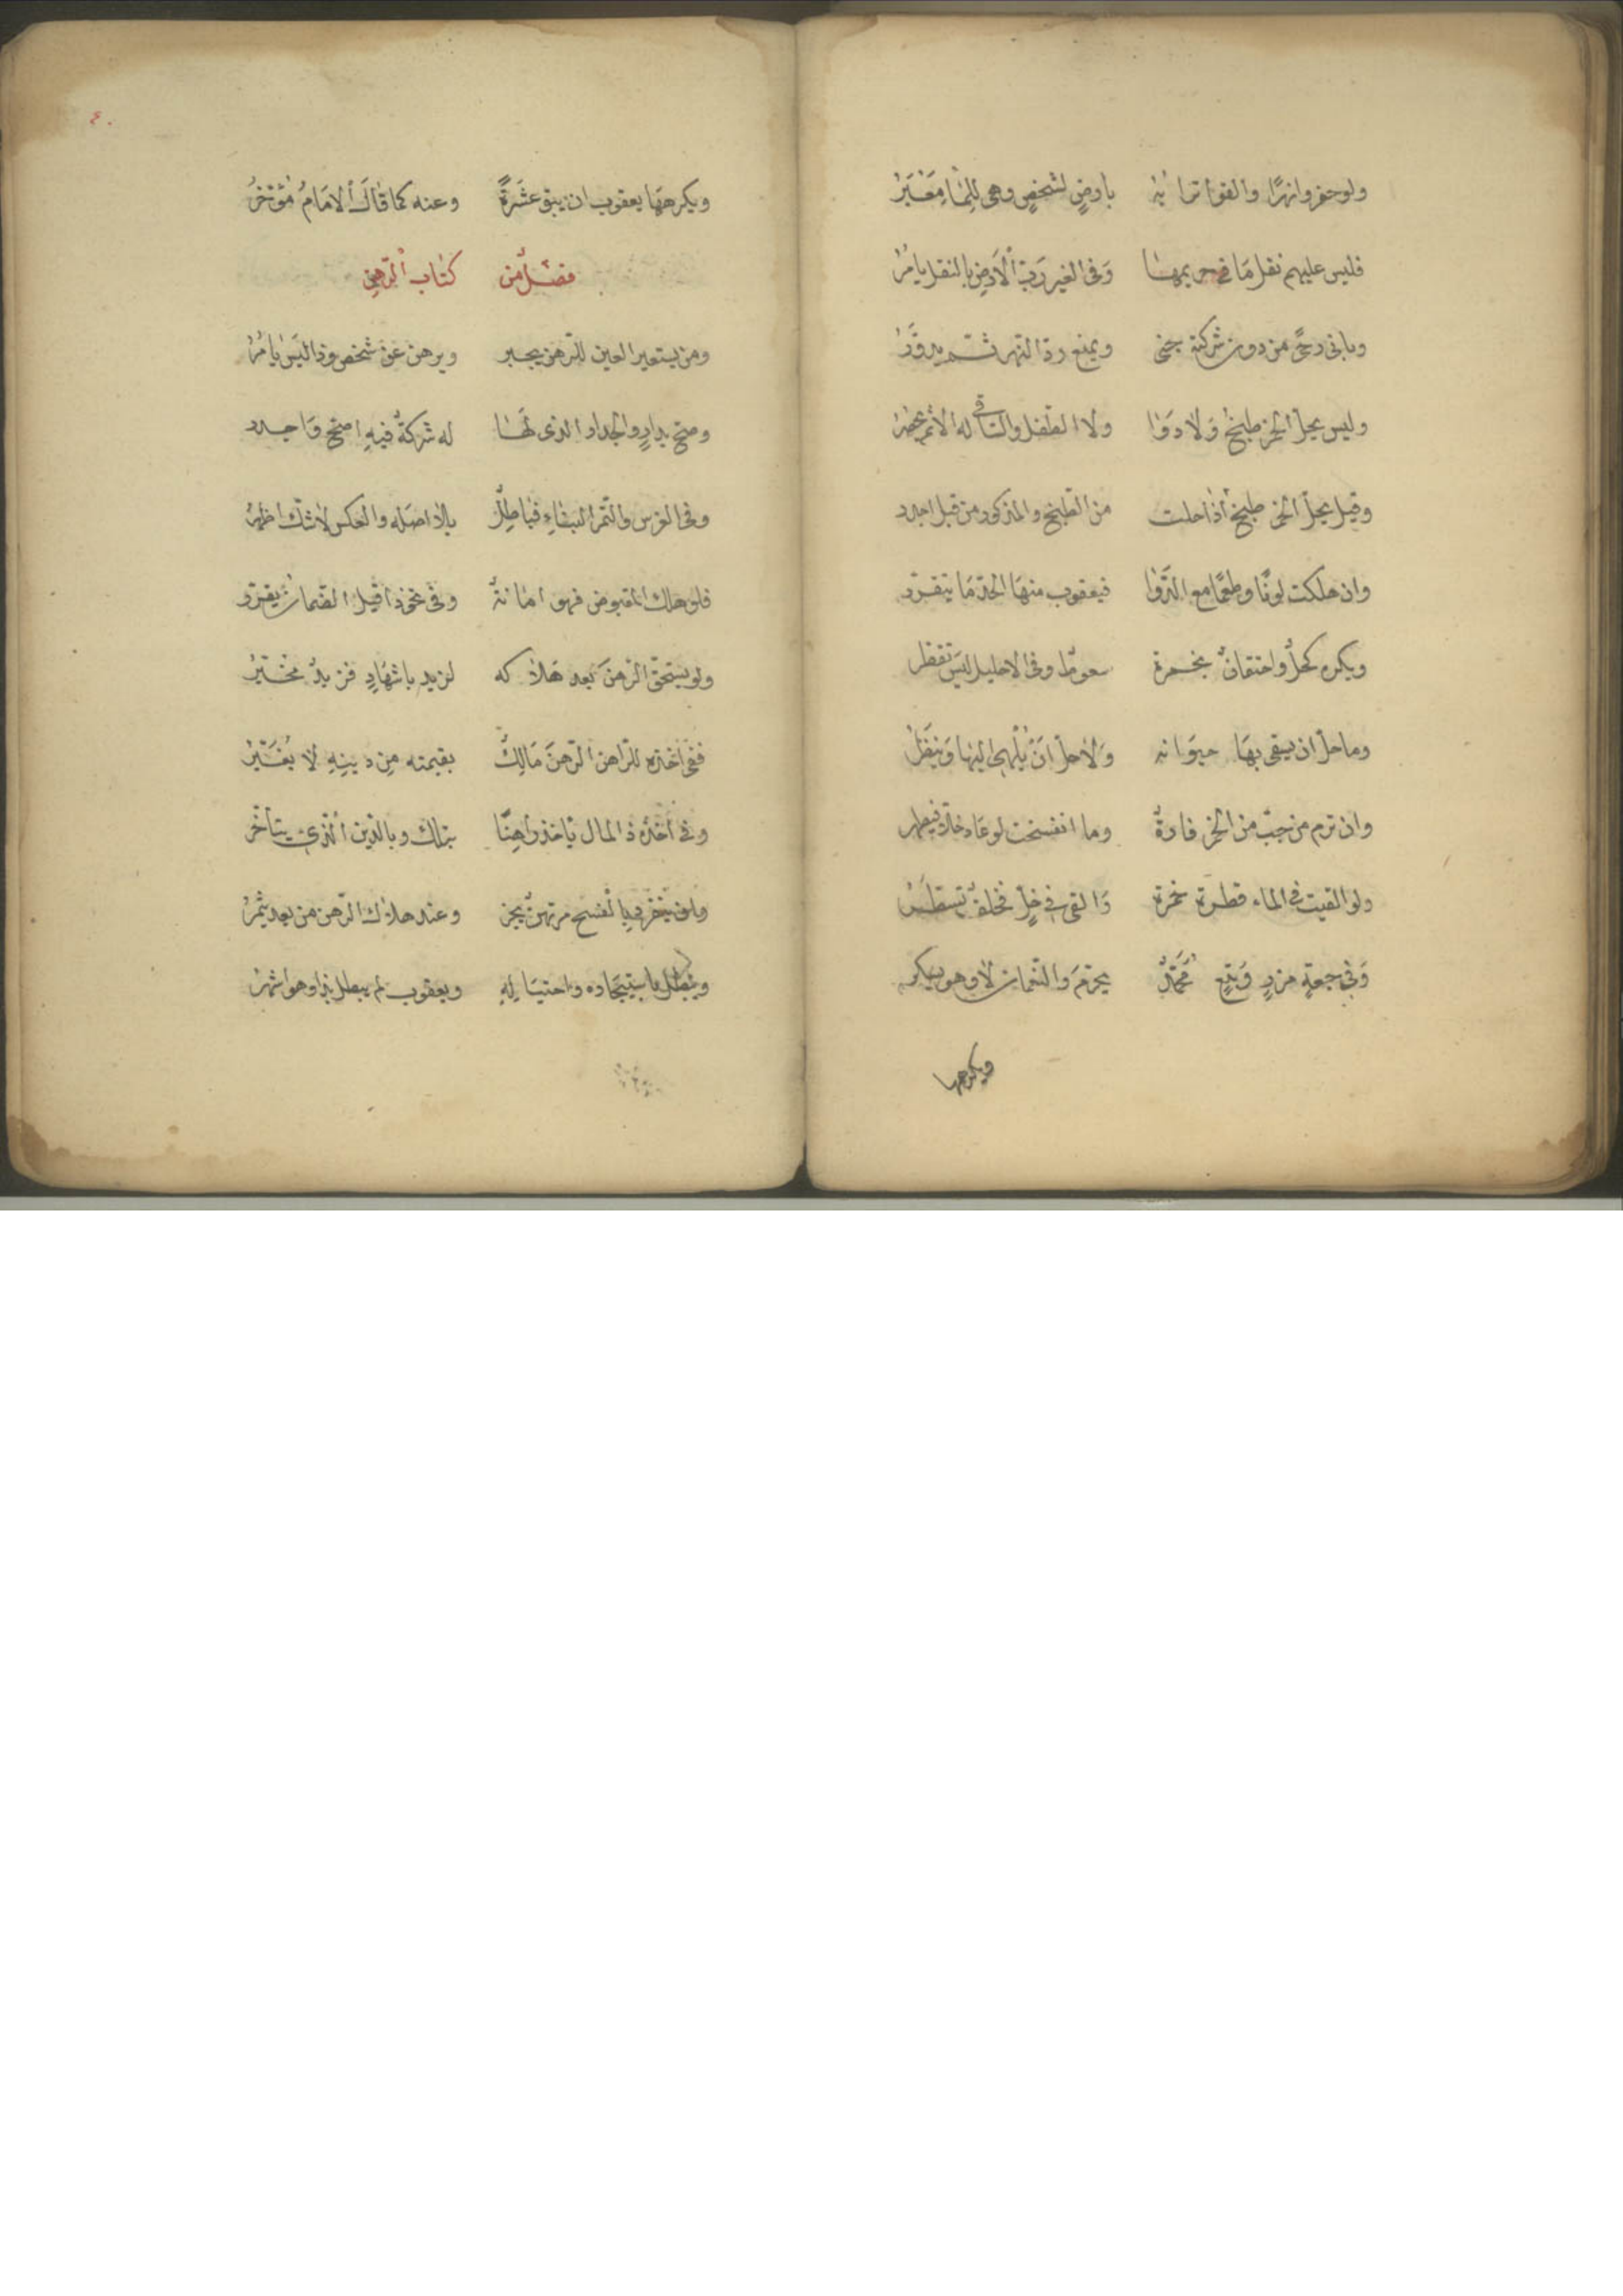 ولو حفروا نهرا والقوا ترابه بارض لشخص وهي للما معبر
فليس عليهم نقل ما في حريمها وفي الغير رب الارض بالنقل يامر
وباني رحى من دون شركته جنى ويمنع رد النهر ثم
وليس يحل الخمر طبخ ولا دوا ولا الطفل والساقي له الاثم يحضر
وقيل يحل الخمر طبخ اذا حلت من الطبخ والمذكور من قبل اجدر
وان هلكت لونا وطعما مع الدوا فيعقوب منها الحد ما يتقرر
ويكره كحل واحتقان بخمرة سعوط وفي الاحليل ليس تقطر
وما حل ان يسقي بها حيوانه ولا حل ان يلهى اليها وينظر
وان ترم من حب من الخمر فارة وما انفسخت لو عاد خلا فيطهر
ولو القيت في الماء قطرة خمرة والقي في خل فخلف
وفي جعة مزر وبتع محمد يحرم والنعمان لا وهو يسكر
ويكرهها
٤٠
ويكرهها يعقوب ان يبق عشرة وعنه كما قال الامام مؤخر
فصل من كتاب الرهن
ومن يستعير العين للرهن يجبر ويرهن عن شخص وذا ليس يامر
وصح بدار والجدار الذي لها له شركة فيه اصح واجدر
وفي الغرس والتمر البقاء فباطل بلا اصله والعكس لا شك اظهر
فلو هلك المقبوض فهو امانة وفي نحو ذا قيل الضمان يقرر
ولو يستحق الرهن بعد هلاكه لزيد باشهاد فزيد مخير
ففي اخذه للراهن الرهن مالك بقيمته من دينه لا يغير
وفي اخذه ذا المال ياخذ راهنا بتلك وبالدين الذي يتاخر
بالفسخ مرتهن يجز وعند هلاك الرهن من بعد يثمر
ويبطل باستيجاره واحتياله ويعقوب لم يبطل بذا وهو اشهر